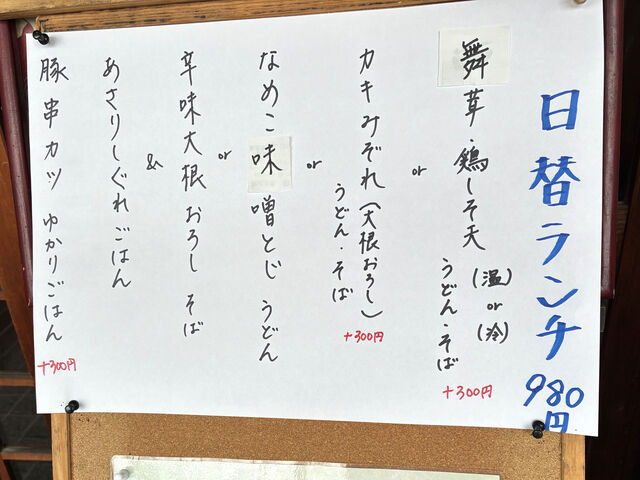 日替ランチ 980円
舞茸・鶏しそ天 (温) or (冷)
うどん・そば
+300円
or
カキみぞれ(大根おろし)
うどん・そば
+300円
or
なめこ味噌とじ うどん
or
辛味大根おろし そば
&
あさりしぐれごはん
豚串カツ ゆかりごはん
+300円